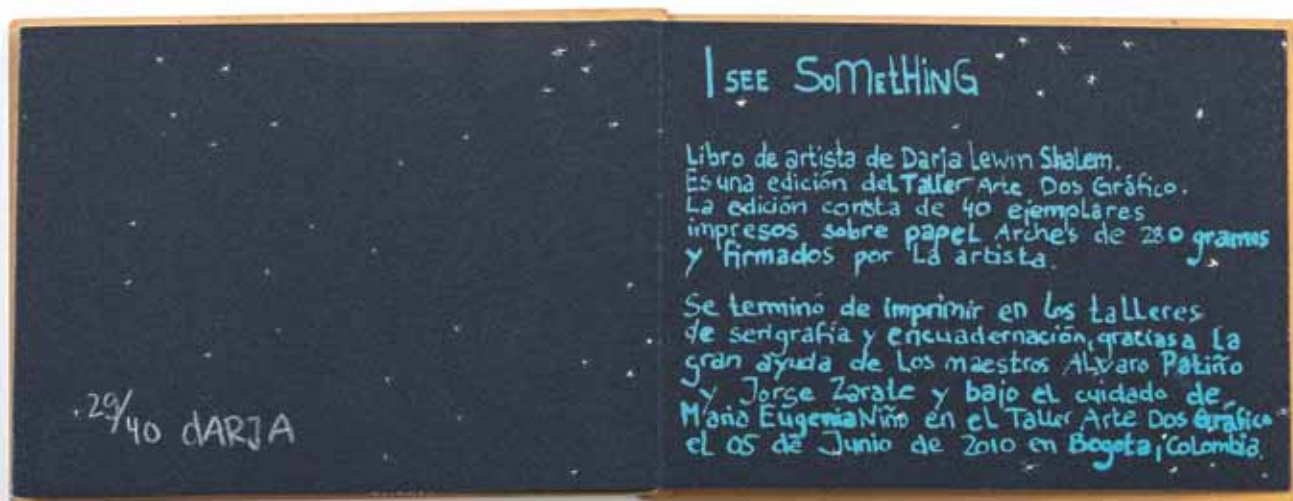 29/40 dARJA
I SEE SoMetHiNG
Libro de artista de Darja Lewin Shalem.
Es una edición del Taller Arte Dos Gráfico.
La edición consta de 40 ejemplares
impresos sobre papel Arches de 280 gramos
y firmados por la artista.
Se terminó de imprimir en los talleres
de serigrafía y encuadernación, gracias a la
gran ayuda de Los maestros ALvaro Patiño
y Jorge Zarate y bajo el cuidado de
Maria Eugenia Niño en el Taller Arte Dos Gráfico
el 05 de Junio de 2010 en Bogota, Colombia.